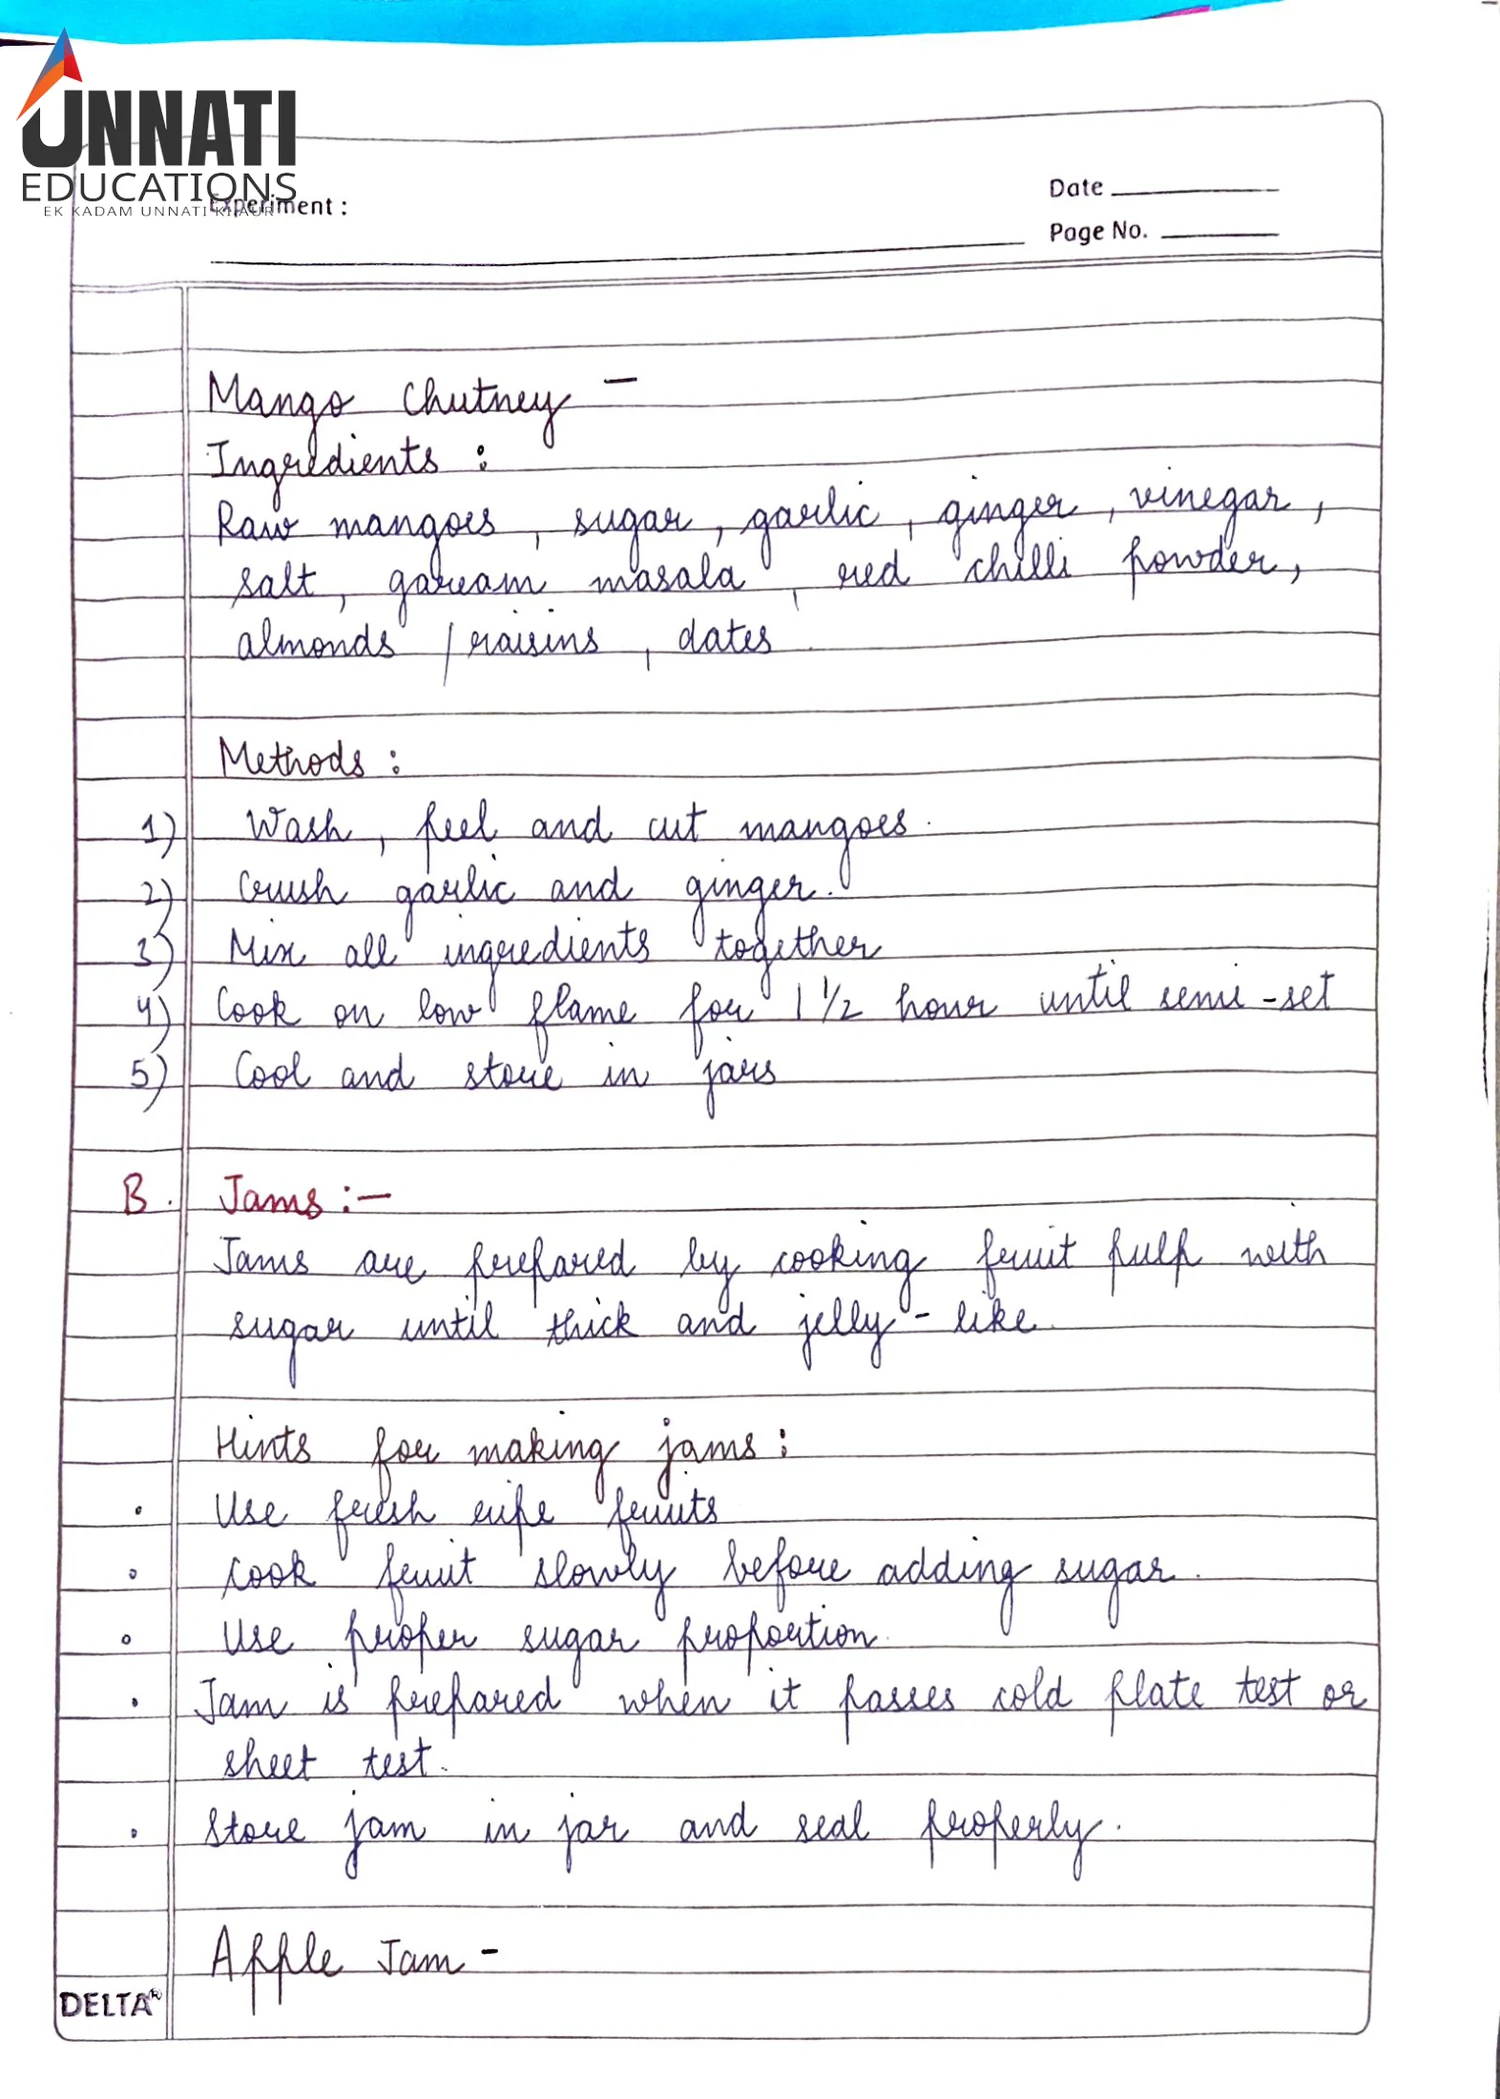 UNNATI
EDUCATIONS
EK KADAM UNNATI KI AUR
Experiment :
Date
Page No.
Mango Chutney -
Ingredients :
Raw mangoes , sugar , garlic , ginger , vinegar ,
salt , garam masala , red chilli powder ,
almonds / raisins , dates
Methods :
1) Wash , peel and cut mangoes.
2) Crush garlic and ginger.
3) Mix all ingredients together
4) Cook on low flame for 1 1/2 hour until semi-set
5) Cool and store in jars
B. Jams :-
Jams are prepared by cooking fruit pulp with
sugar until thick and jelly-like.
Hints for making jams :
• Use fresh ripe fruits
• Cook fruit slowly before adding sugar.
• Use proper sugar proportion.
• Jam is prepared when it passes cold plate test or
sheet test.
• Store jam in jar and seal properly.
Apple Jam -
DELTA®